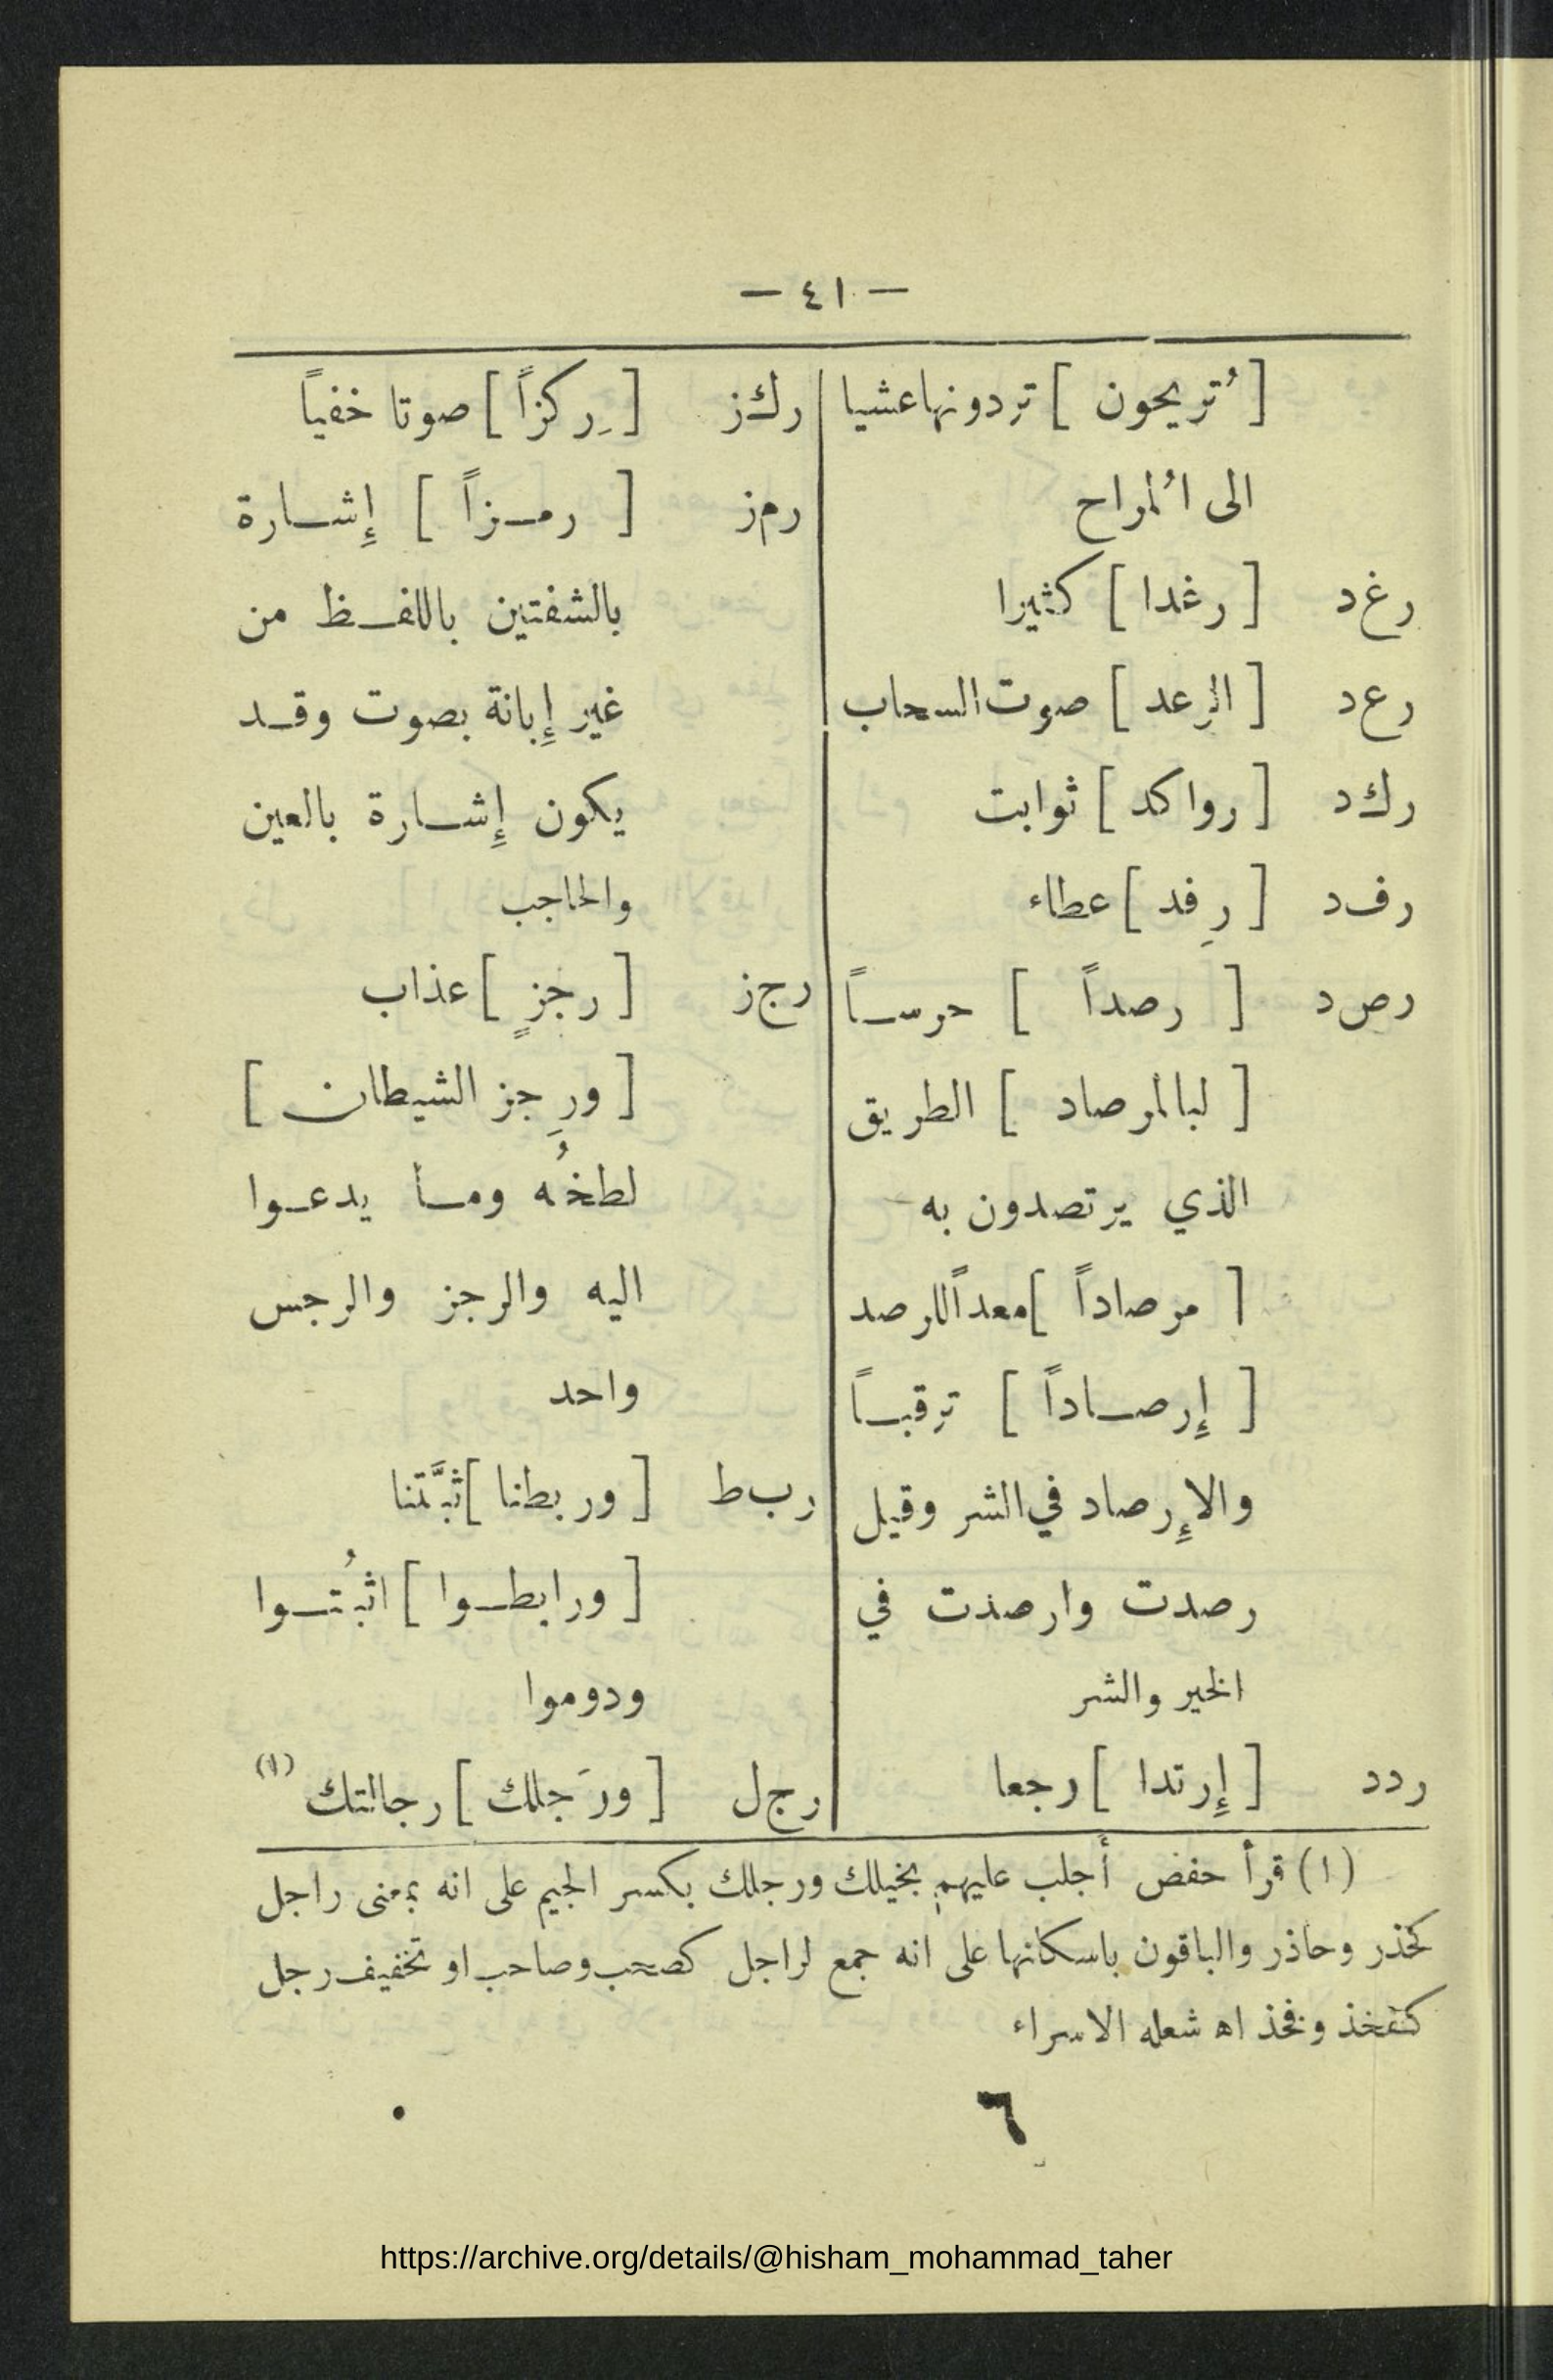 — ٤١ —
[ تُريحون ] تردونها عشيا
الى المُراح
رغ د [ رغدا ] كثيرا
رع د [ الرعد ] صوت السحاب
رك د [ رواكد ] ثوابت
رف د [ رِفد ] عطاء
رص د [ رصداً ] حرساً
[ لبالمرصاد ] الطريق
الذي يرتصدون به
[ مرصاداً ] معداً للرصد
[ إِرصاداً ] ترقباً
والإِرصاد في الشر وقيل
رصدت وارصدت في
الخير والشر
ردد [ إِرتدا ] رجعا
رك ز [ رِكزاً ] صوتا خفياً
رم ز [ رمزاً ] إِشارة
بالشفتين باللفظ من
غير إِبانة بصوت وقد
يكون إِشارة بالعين
والحاجب
رج ز [ رجزٍ ] عذاب
[ ورِجزَ الشيطان ]
لطخُه وما يدعوا
اليه والرجز والرجس
واحد
رب ط [ وربطنا ] ثبَّتنا
[ ورابطوا ] اثبُتوا
ودوموا
رج ل [ ورَجلك ] رجالتك (١)
(١) قرأ حفض أجلب عليهم بخيلك ورجلك بكسر الجيم على انه بمعنى راجل
كحذر وحاذر والباقون باسكانها على انه جمع لراجل كصحب وصاحب او تخفيف رجل
كتفخذ وفخذ اه شعله الاسراء
٦
https://archive.org/details/@hisham_mohammad_taher